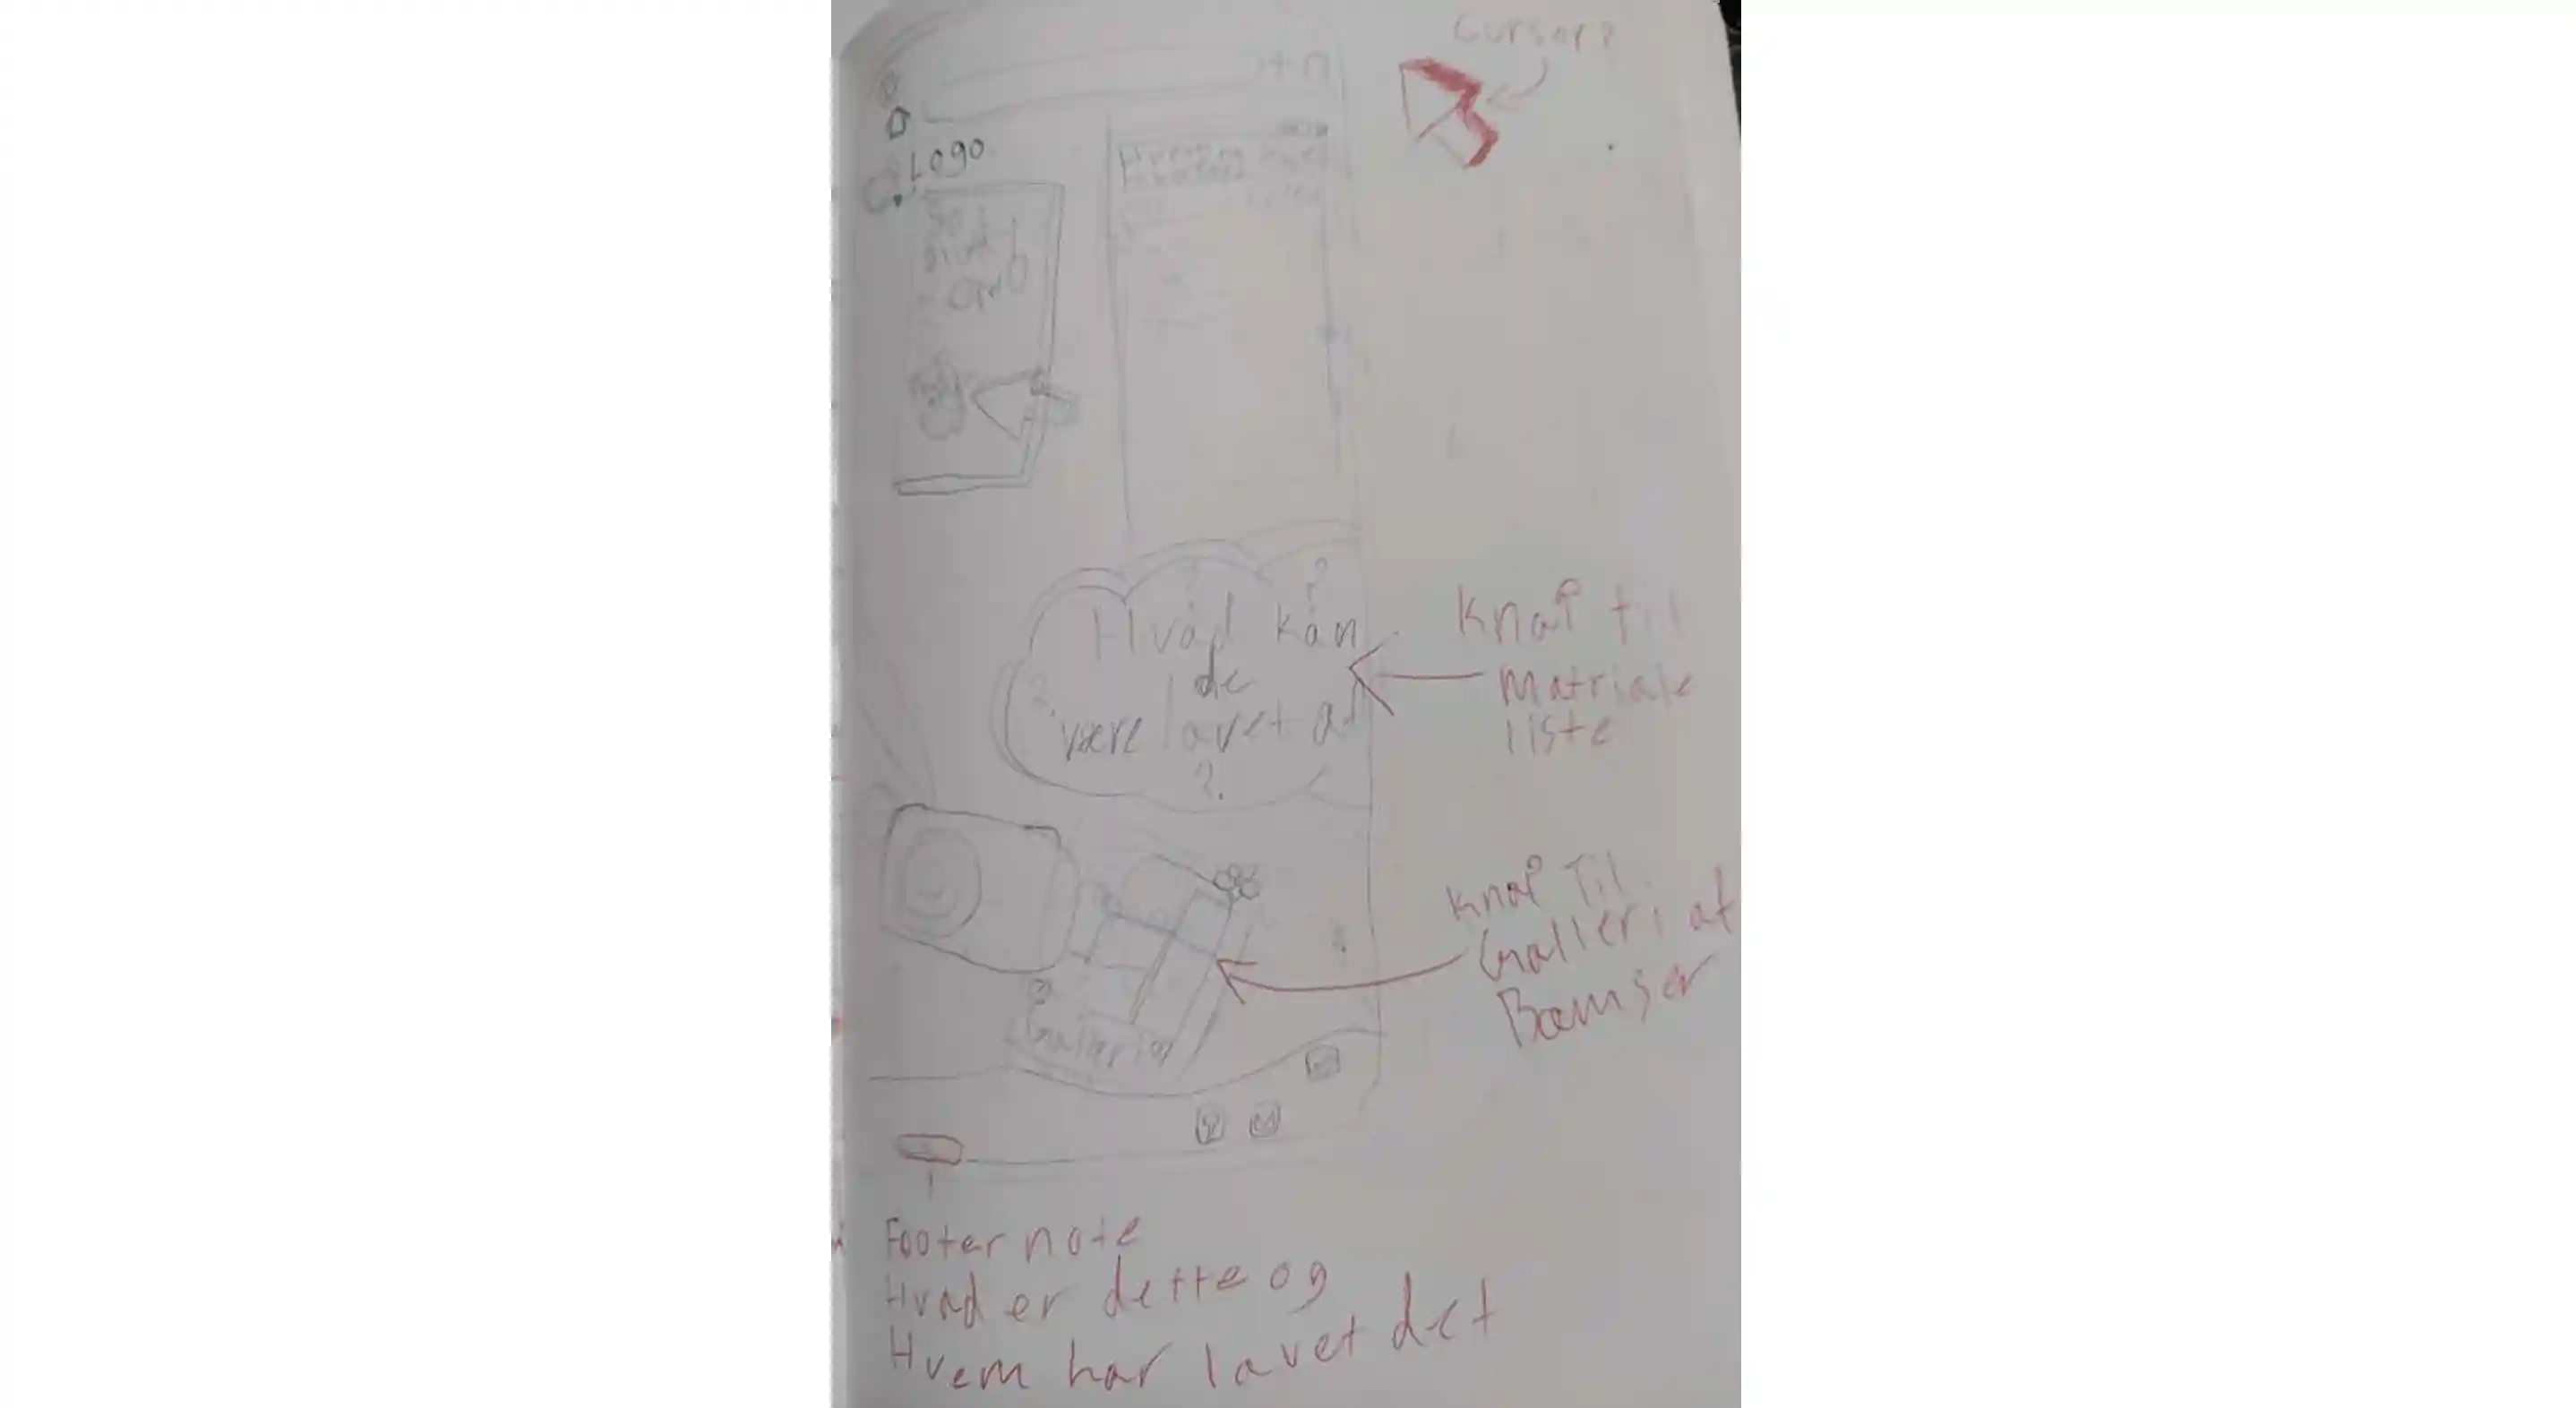 Cursor?
Logo
Hvad kan
de
være lavet af
?
Knap til
Matriale
liste
Knap Til
Galleri af
Bamser
Galleri
Footer note
Hvad er dette og
Hvem har lavet det